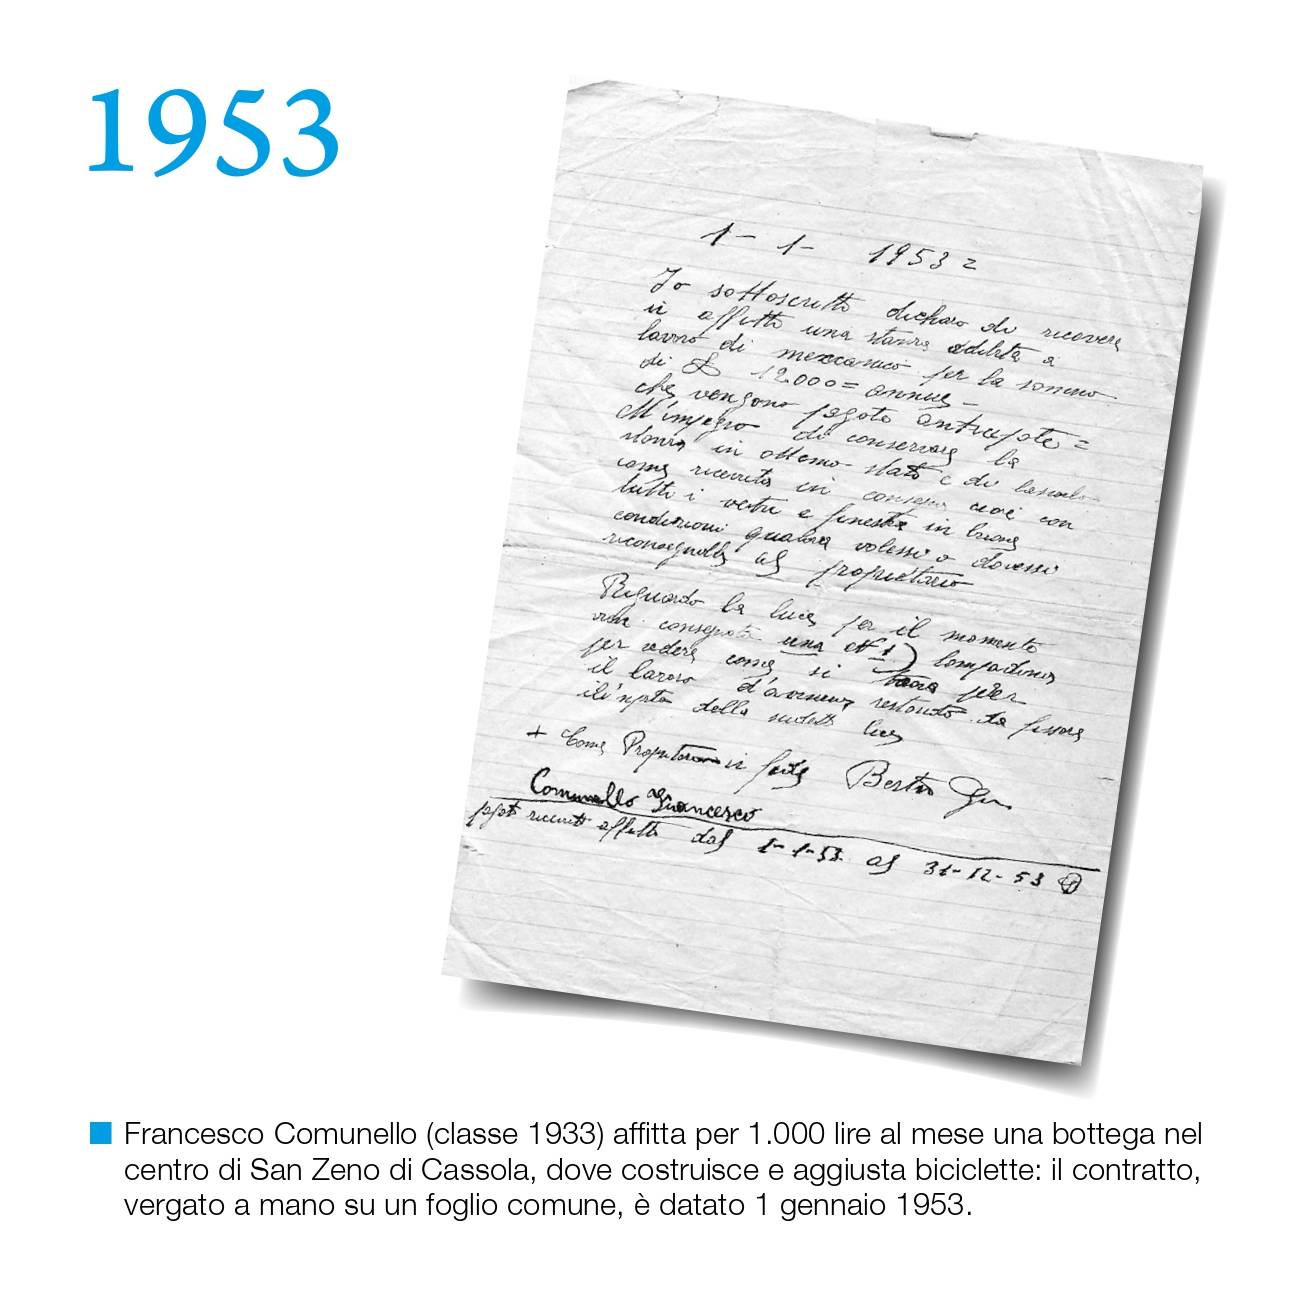 1953
1 - 1 - 1953 =
Io sottoscritto dichiaro di ricevere
in affitto una stanza addibita a
lavoro di meccanico per la somma
di £ 12.000 = annue -
che vengono pagate anticipate =
M'impegno di conservare la
stanza in ottimo stato e di lasciarla
come ricevuta in consegna cioè con
tutti i vetri e finestre in buone
condizioni qualora volessi o dovessi
riconsegnarla al proprietario
Riguardo la luce per il momento
vien consegnata una (N 1) lampadina
per vedere come si per
il lavoro d'avvenire restando da fissare
della sudetta luce
+ Come Proprietario in fede
Comunello Francesco
pagato ricevuto affitto dal 1-1-53 al 31-12-53
Francesco Comunello (classe 1933) affitta per 1.000 lire al mese una bottega nel
centro di San Zeno di Cassola, dove costruisce e aggiusta biciclette: il contratto,
vergato a mano su un foglio comune, è datato 1 gennaio 1953.